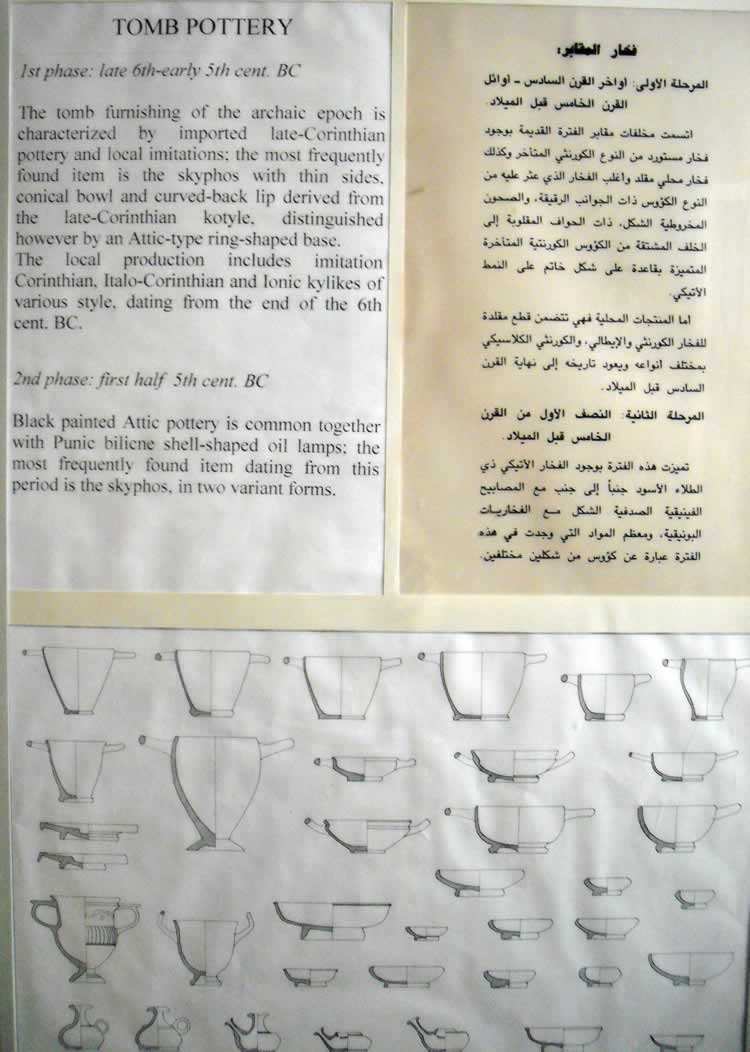 TOMB POTTERY
1st phase: late 6th-early 5th cent. BC
The tomb furnishing of the archaic epoch is
characterized by imported late-Corinthian
pottery and local imitations; the most frequently
found item is the skyphos with thin sides,
conical bowl and curved-back lip derived from
the late-Corinthian kotyle, distinguished
however by an Attic-type ring-shaped base.
The local production includes imitation
Corinthian, Italo-Corinthian and Ionic kylikes of
various style, dating from the end of the 6th
cent. BC.
2nd phase: first half 5th cent. BC
Black painted Attic pottery is common together
with Punic bilicne shell-shaped oil lamps; the
most frequently found item dating from this
period is the skyphos, in two variant forms.
فخار المقابر:
المرحلة الأولى: أواخر القرن السادس - أوائل
القرن الخامس قبل الميلاد.
اتسمت مخلفات مقابر الفترة القديمة بوجود
فخار مستورد من النوع الكورنثي المتأخر وكذلك
فخار محلي مقلد وأغلب الفخار الذي عثر عليه من
النوع الكؤوس ذات الجوانب الرقيقة، والصحون
المخروطية الشكل، ذات الحواف المقلوبة إلى
الخلف المشتقة من الكؤوس الكورنثية المتأخرة
المتميزة بقاعدة على شكل خاتم على النمط
الأتيكي.
أما المنتجات المحلية فهي تتضمن قطع مقلدة
للفخار الكورنثي والإيطالي، والكورنثي الكلاسيكي
بمختلف أنواعه ويعود تاريخه إلى نهاية القرن
السادس قبل الميلاد.
المرحلة الثانية: النصف الأول من القرن
الخامس قبل الميلاد.
تميزت هذه الفترة بوجود الفخار الأتيكي ذي
الطلاء الأسود جنباً إلى جنب مع المصابيح
الفينيقية الصدفية الشكل مع الفخاريات
البونيقية، ومعظم المواد التي وجدت في هذه
الفترة عبارة عن كؤوس من شكلين مختلفين.